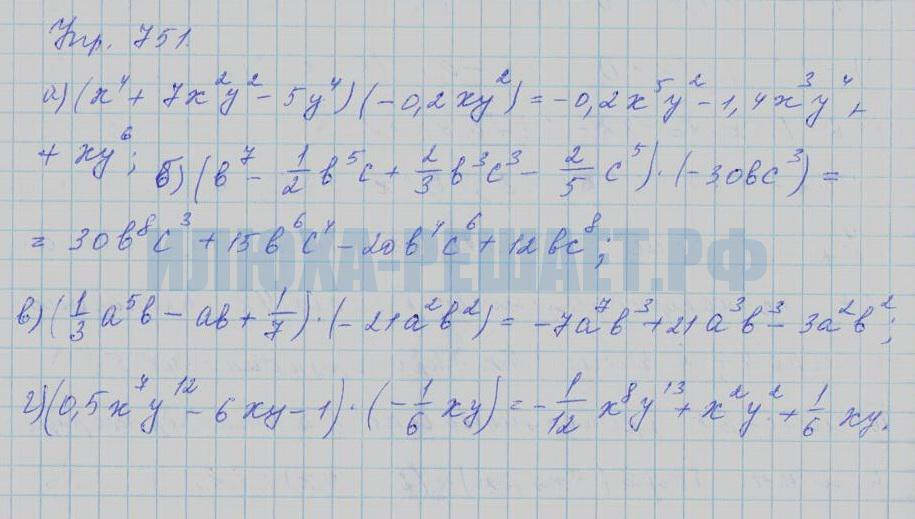 Упр. 751.
а) (x⁴ + 7x²y² - 5y⁴) (-0,2xy²) = -0,2x⁵y² - 1,4x³y⁴ +
+ xy⁶; б) (b⁷ - 1/2 b⁵c + 2/3 b³c³ - 2/5 c⁵) · (-30bc³) =
= 30b⁸c³ + 15b⁶c⁴ - 20b⁴c⁶ + 12bc⁸;
ИЛЮХА-РЕШАЕТ.РФ
в) (1/3 a⁵b - ab + 1/7) · (-21a²b²) = -7a⁷b³ + 21a³b³ - 3a²b²;
г) (0,5x⁷y¹² - 6xy - 1) · (-1/6 xy) = -1/12 x⁸y¹³ + x²y² + 1/6 xy.